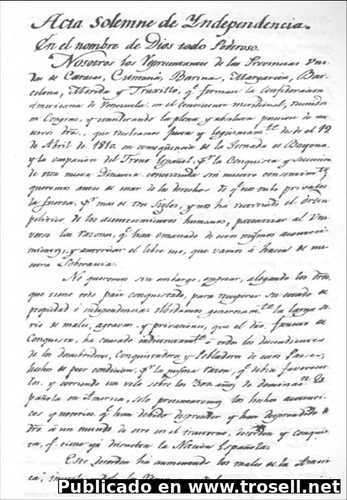 Acta Solemne de Independencia
En el nombre de Dios todo Poderoso.
Nosotros los Representantes de las Provincias Uni-
das de Caracas, Cumaná, Barinas, Margarita, Bar-
celona, Mérida y Truxillo, q.e forman la Confederacion
Americana de Venezuela en el continente meridional, reunidos
en Congreso, y considerando la plena y absoluta posesion de
desde el 19
de Abril de 1810. en conseqüencia de la Jornada de Bayona
y la ocupacion del Trono Español, p.r la Conquista y sucesion
de otra nueva Dinastia
queremos antes de usar de los derechos de q.e nos tuvo privados
la fuerza, p.r mas de tres Siglos, y nos ha
politico de los acontecimientos humanos, patentizar al Uni-
verso las razones, q.e han emanado de estos mismos aconteci-
mientos, y autorizan el libre uso, que vamos á hacer de nu-
estra Soberania.
No queremos sin embargo, empezar, alegando los
que tiene todo pais conquistado, para recuperar su estado de
propiedad é independencia: olvidamos generosam.te la larga
serie de males, agravios y privaciones, que el
Conquista, ha causado á todos los descendientes
de los descubridores, Conquistadores y Pobladores de estos Paises,
p.r la misma razon, q.e debia favorecer-
los. y corriendo un velo sobre los 300 años de dominacion Es-
pañola en America, solo presentaremos los hechos autenti-
cos y notorios q.e han debido desprender y han desprendido de
á un mundo de otro en el trastorno, desorden y conquis-
ta, q.e tiene ya disuelta la Nacion Española.
Este desorden ha aumentado los males de la Ame-
rica,
Publicado en www.trosell.net